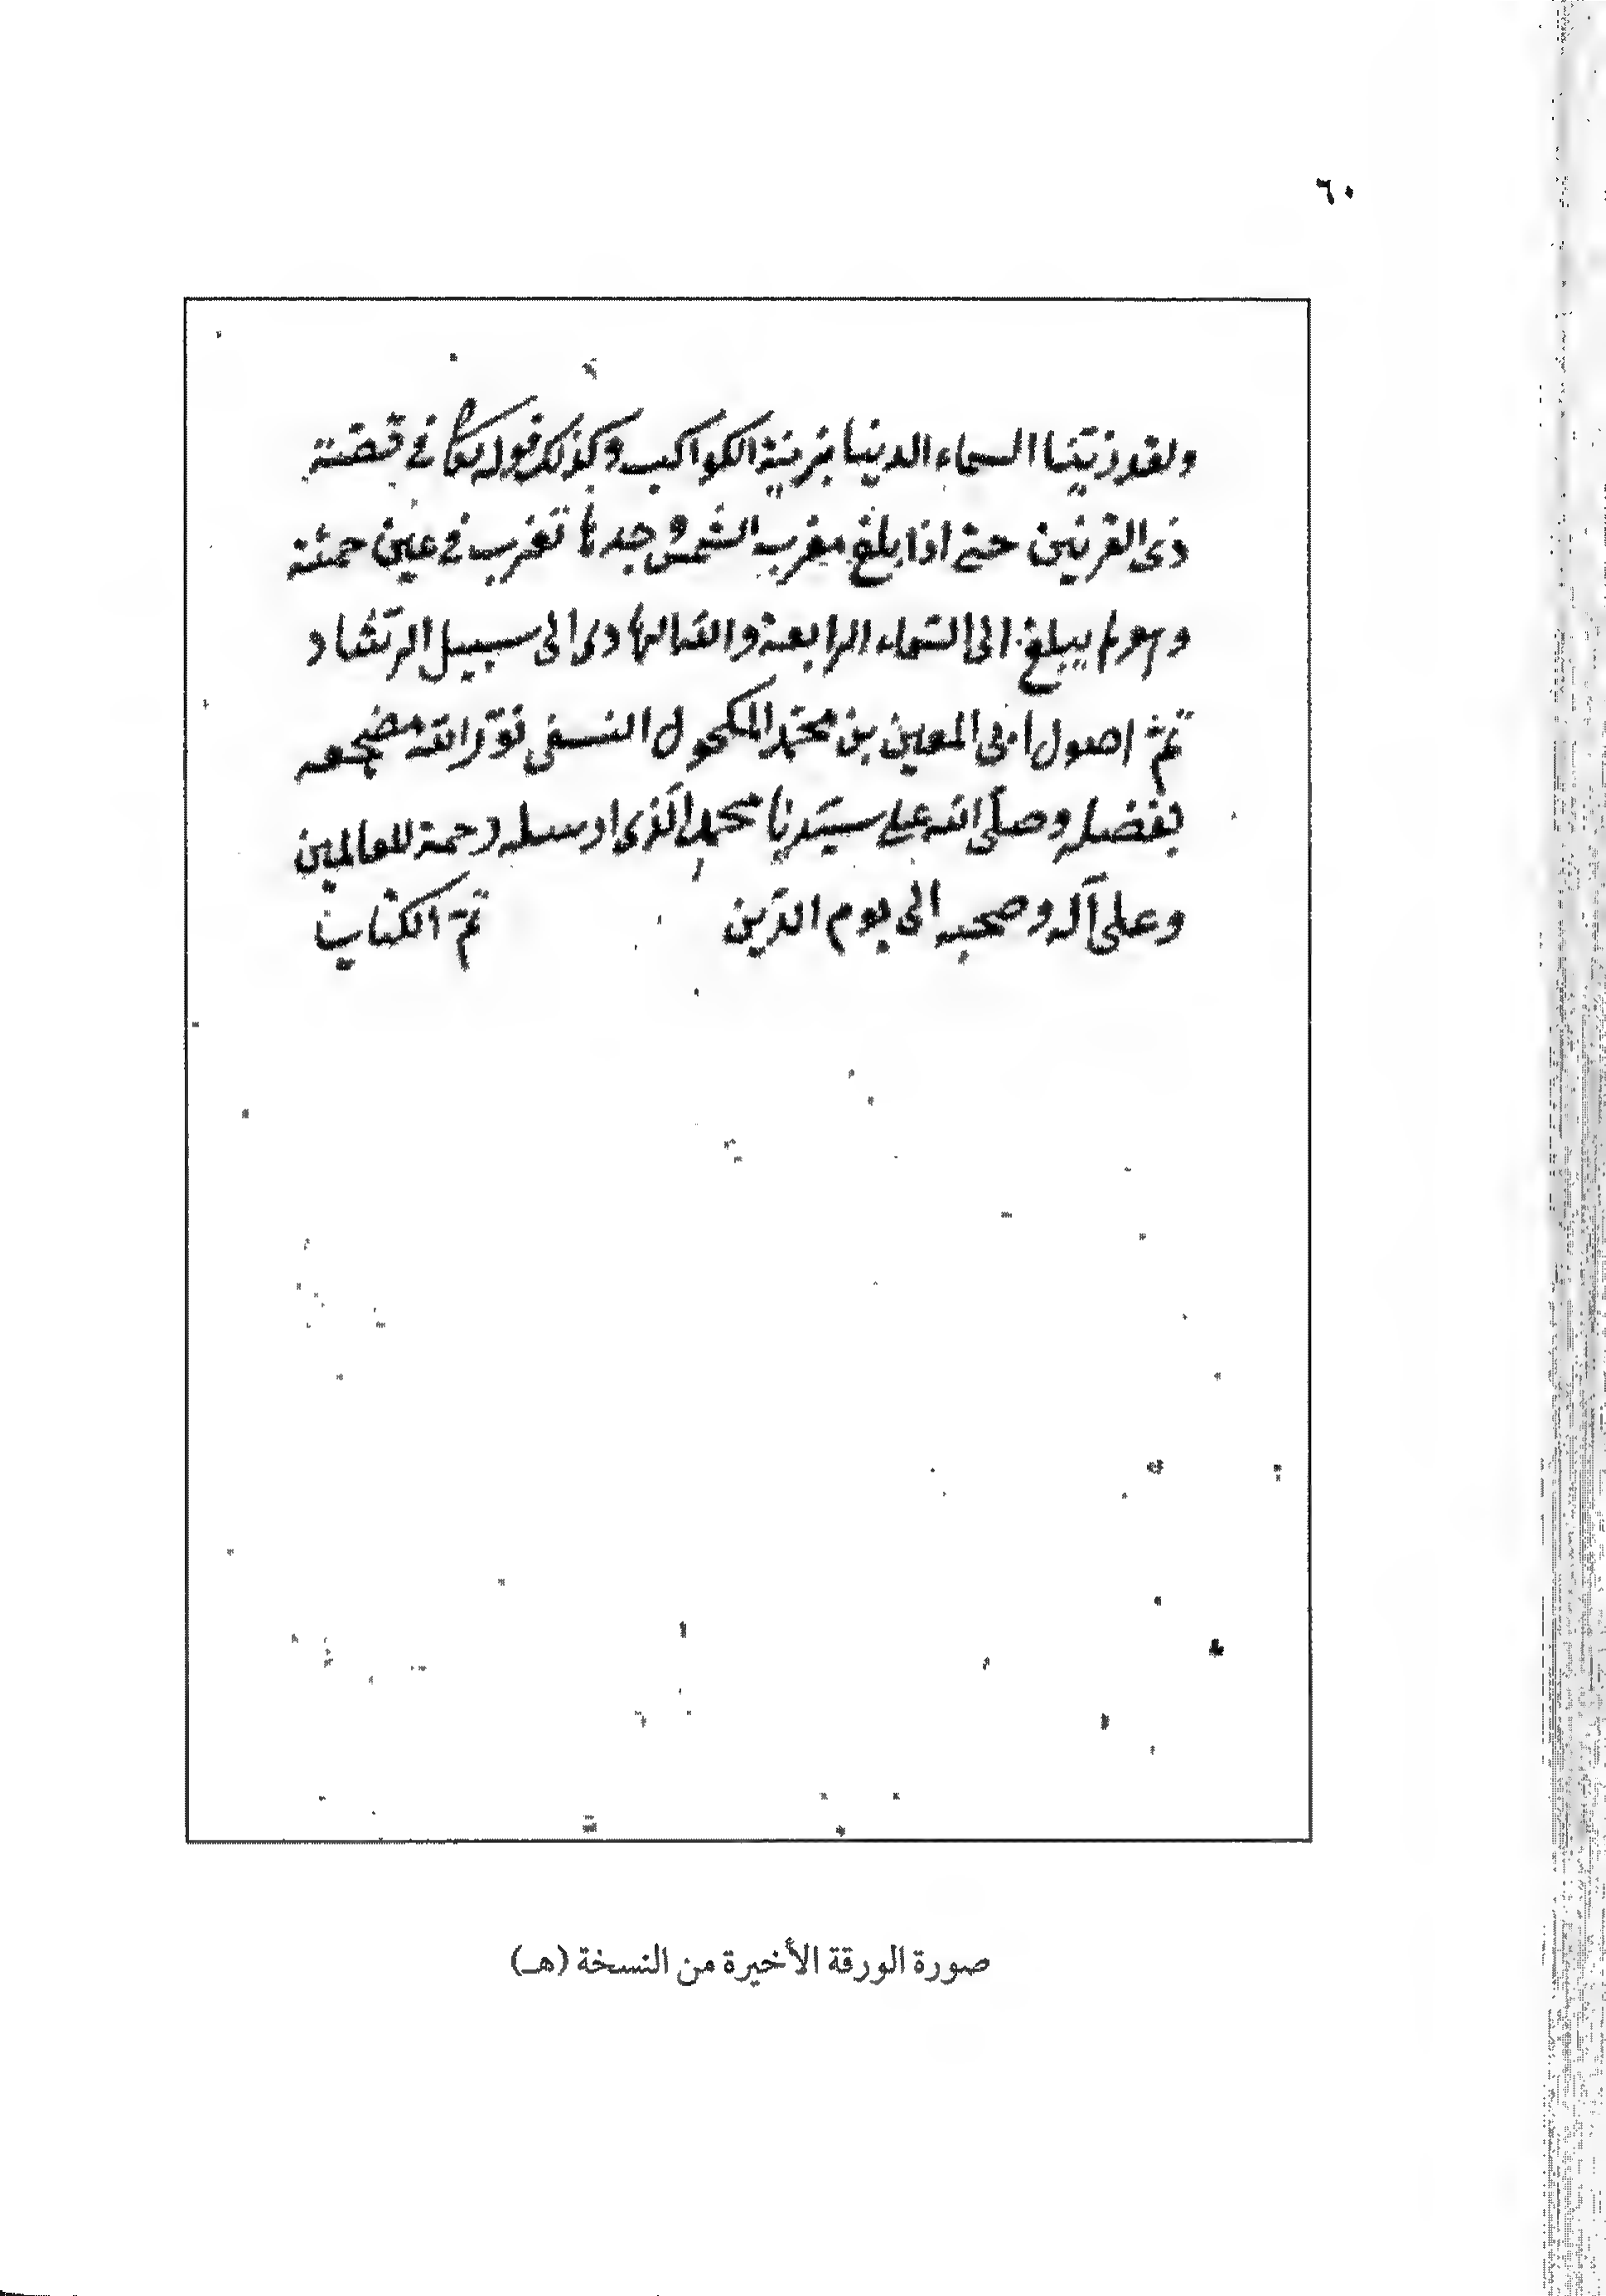 ٦٠
ولقد زيّنا السماء الدنيا بزينة الكواكب وكذلك قوله تعالى في قصّة
ذى القرنين حتى اذا بلغ مغرب الشمس وجدها تغرب في عين حمئة
وهو لم يبلغ الى السّماء الرابعة والله الهادى الى سبيل الرشاد
تمّ اصول ابى المعين بن محمّد المكحول النسفى نوّر الله مضجعه
بفضله وصلّى الله على سيّدنا محمد الّذى ارسله رحمة للعالمين
وعلى آله وصحبه الى يوم الدّين تمّ الكتاب
صورة الورقة الأخيرة من النسخة (هـ)